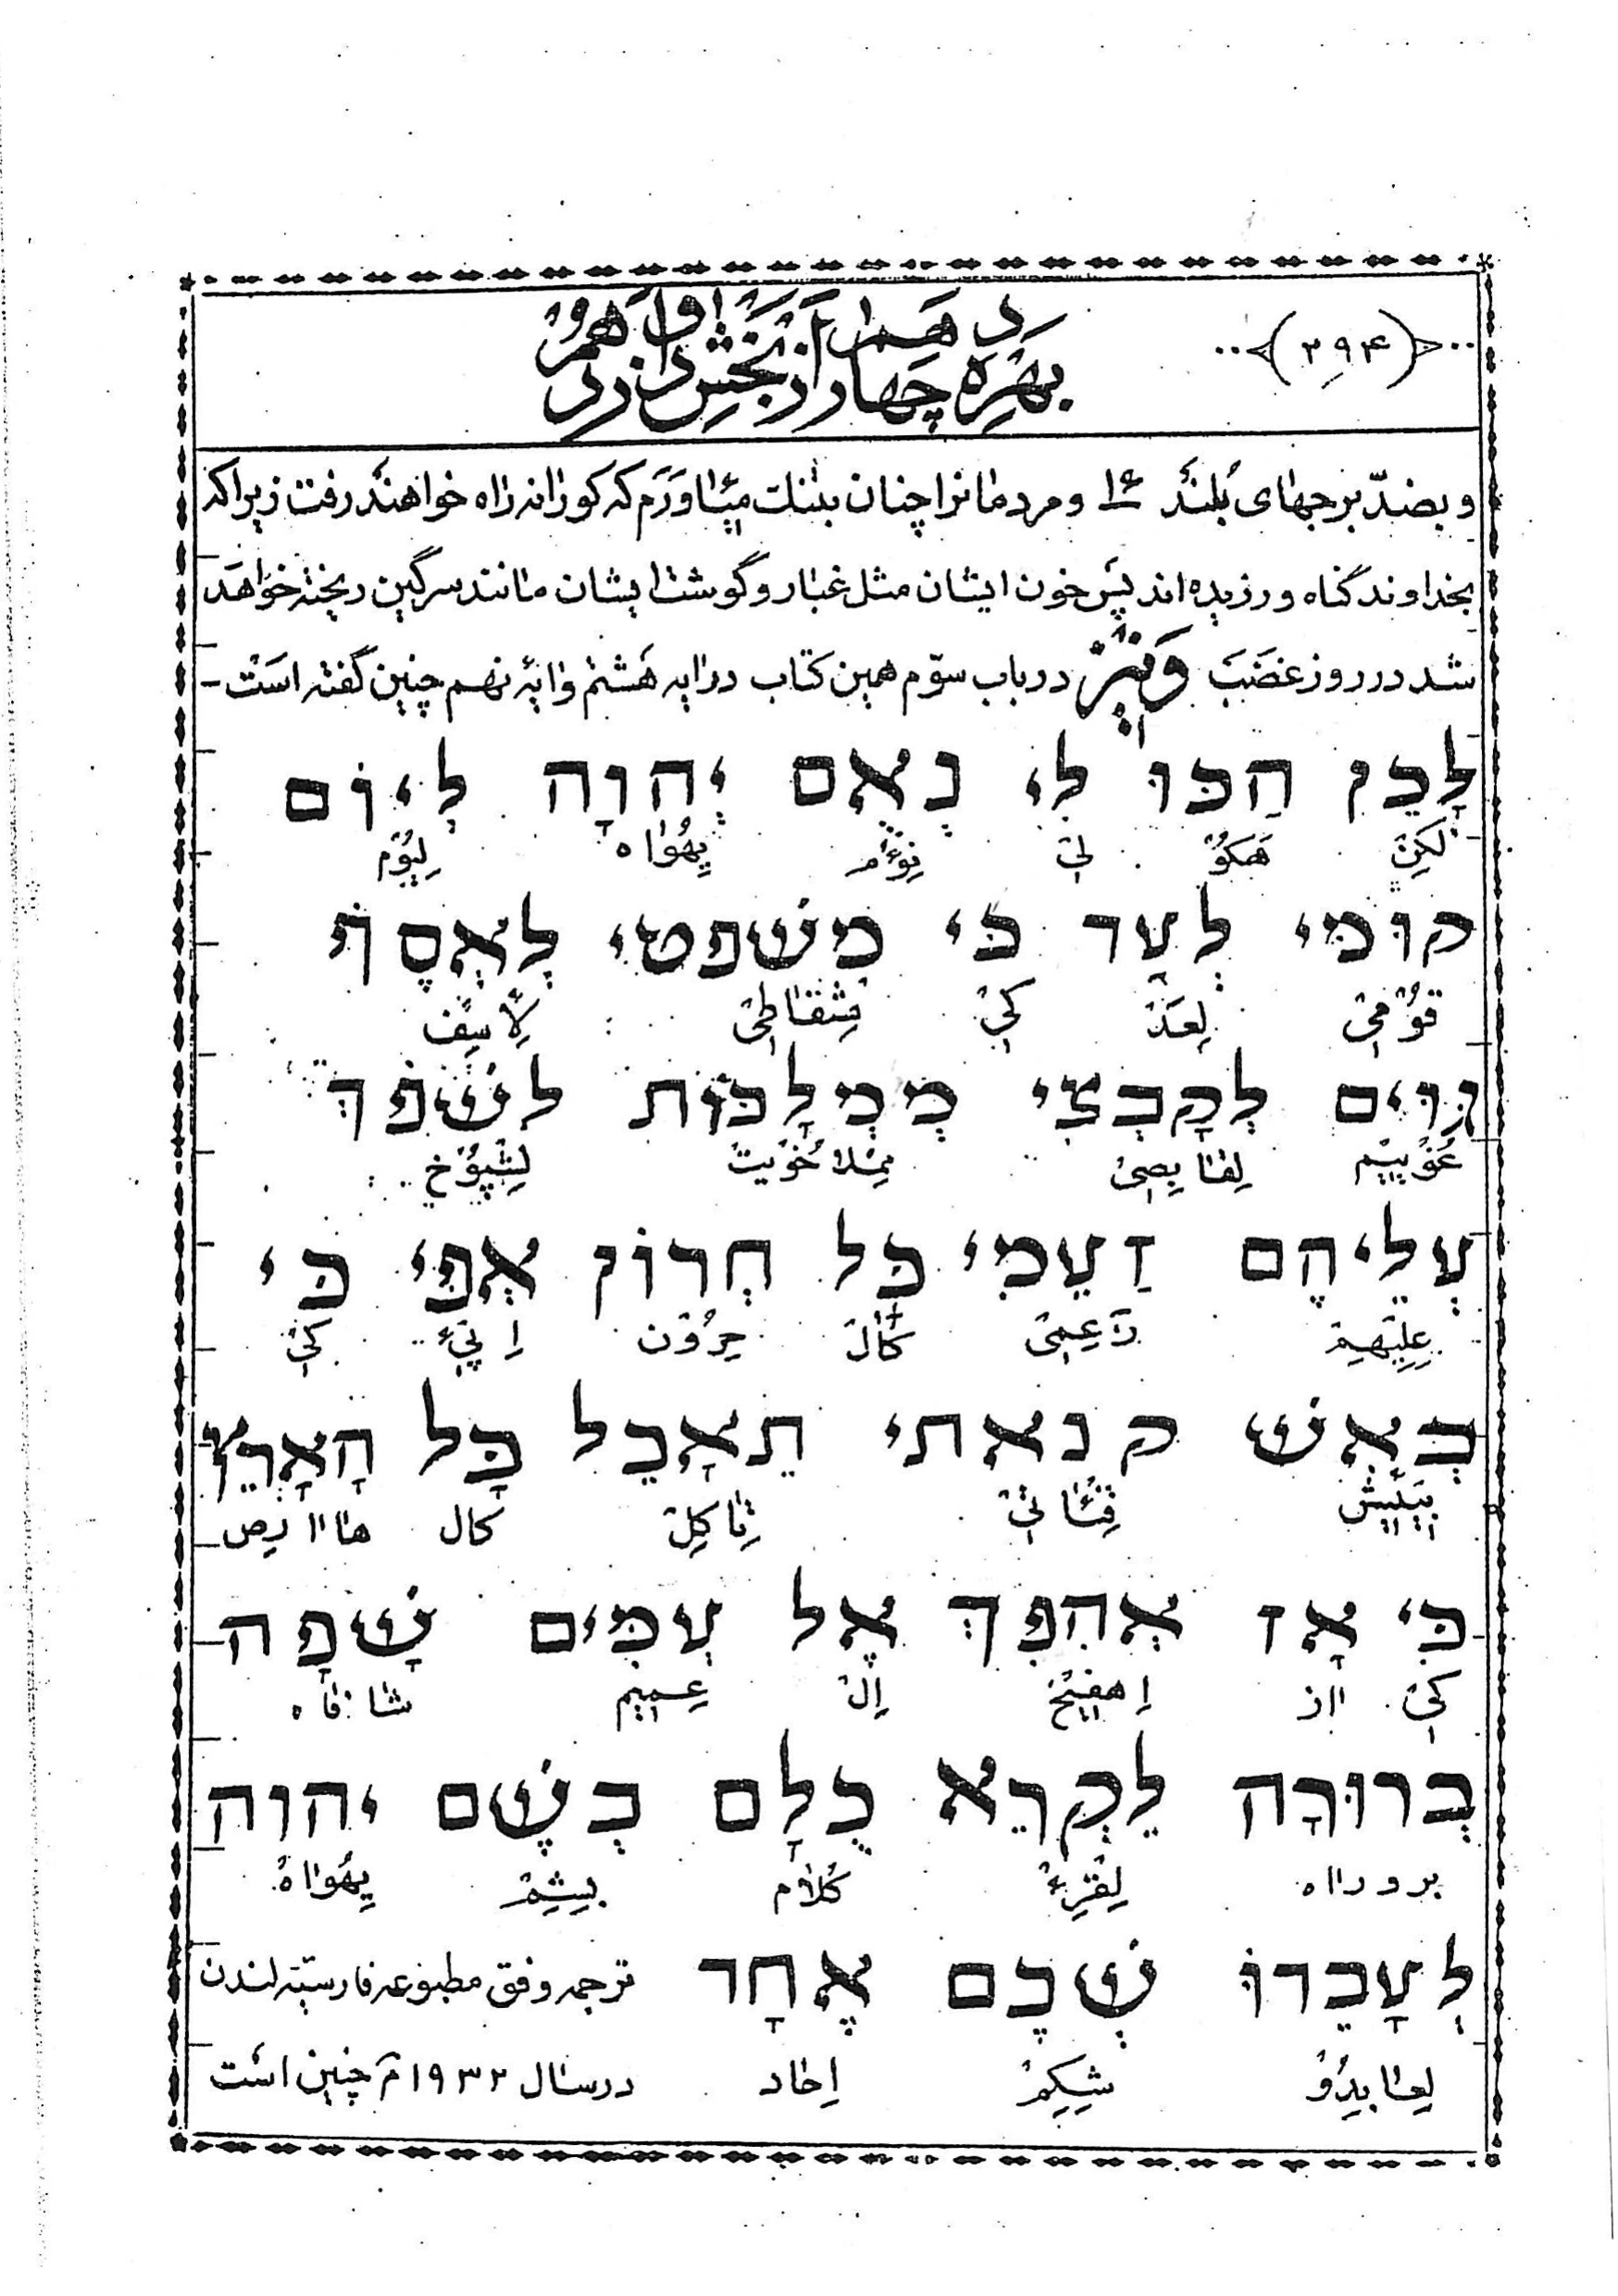 (۲۹۴)
بهره چهاردهم از بخش دوازدهم
و بضدّ برجهای بُلَند ۱۶ و مردمانرا چنان بتنك میآورم که کورانه راه خواهند رفت زیرا که
بخداوند گناه ورزیده‌اند پس خون ایشان مثل غبار و گوشت ایشان مانند سرگین ریخته خواهد
شد در روز غضب وَنیز در باب سوّم همین کتاب در ایه هشتم وایهٔ نهم چنین گفته است-
לָכֵן הַכּוּ לִי נְאֻם יְהוָה לְיוֹם
لَكِنْ هَكوُ لی نِوُام یِهُواه لِیوُم
קוּמִי לְעַד כִּי מִשׁפטי לֶאֱסֹף
قوُمی لِعَدْ کیْ مِشفاطیْ لِاسِف
גּוֹיִם לְקָבְצִי מַמְלָכוֹת לִשׁפֹּךְ
غوُییم لِقابِصیْ مَملاخوُیتْ لِشپوُخ
עֲלֵיהֶם זַעְמִי כֹּל חֲרוֹן אַפִּי כִּי
عِلِیهِمْ زَعِمیْ کالْ حِروُن اپیْ کیْ
בְּאֵשׁ קנאתי תֵאָכֵל כָּל הָאָרֶץ
بِیَییش قِنُاتیْ تِاکِلْ کال هااارِص
כִּי אָז אֶהפֹּךְ אֶל עַמִּים שָׂפָה
کیْ ااز اِهفیخ اِلْ عِمییم شافاه
בְּרוּרָה לִקְרֹא כֻלָּם בְּשֵׁם יהוה
برورااه لِقْرِءْ کُلام بِیشِمْ یِهُوااهْ
לְעָבְדוֹ שְׁכֶם אֶחָד ترجمه وفق مطبوعه فارسیّه لندن
لِعابِدُوْ شِکِمْ اِحاد در سال ۱۹۳۲ م چنین است